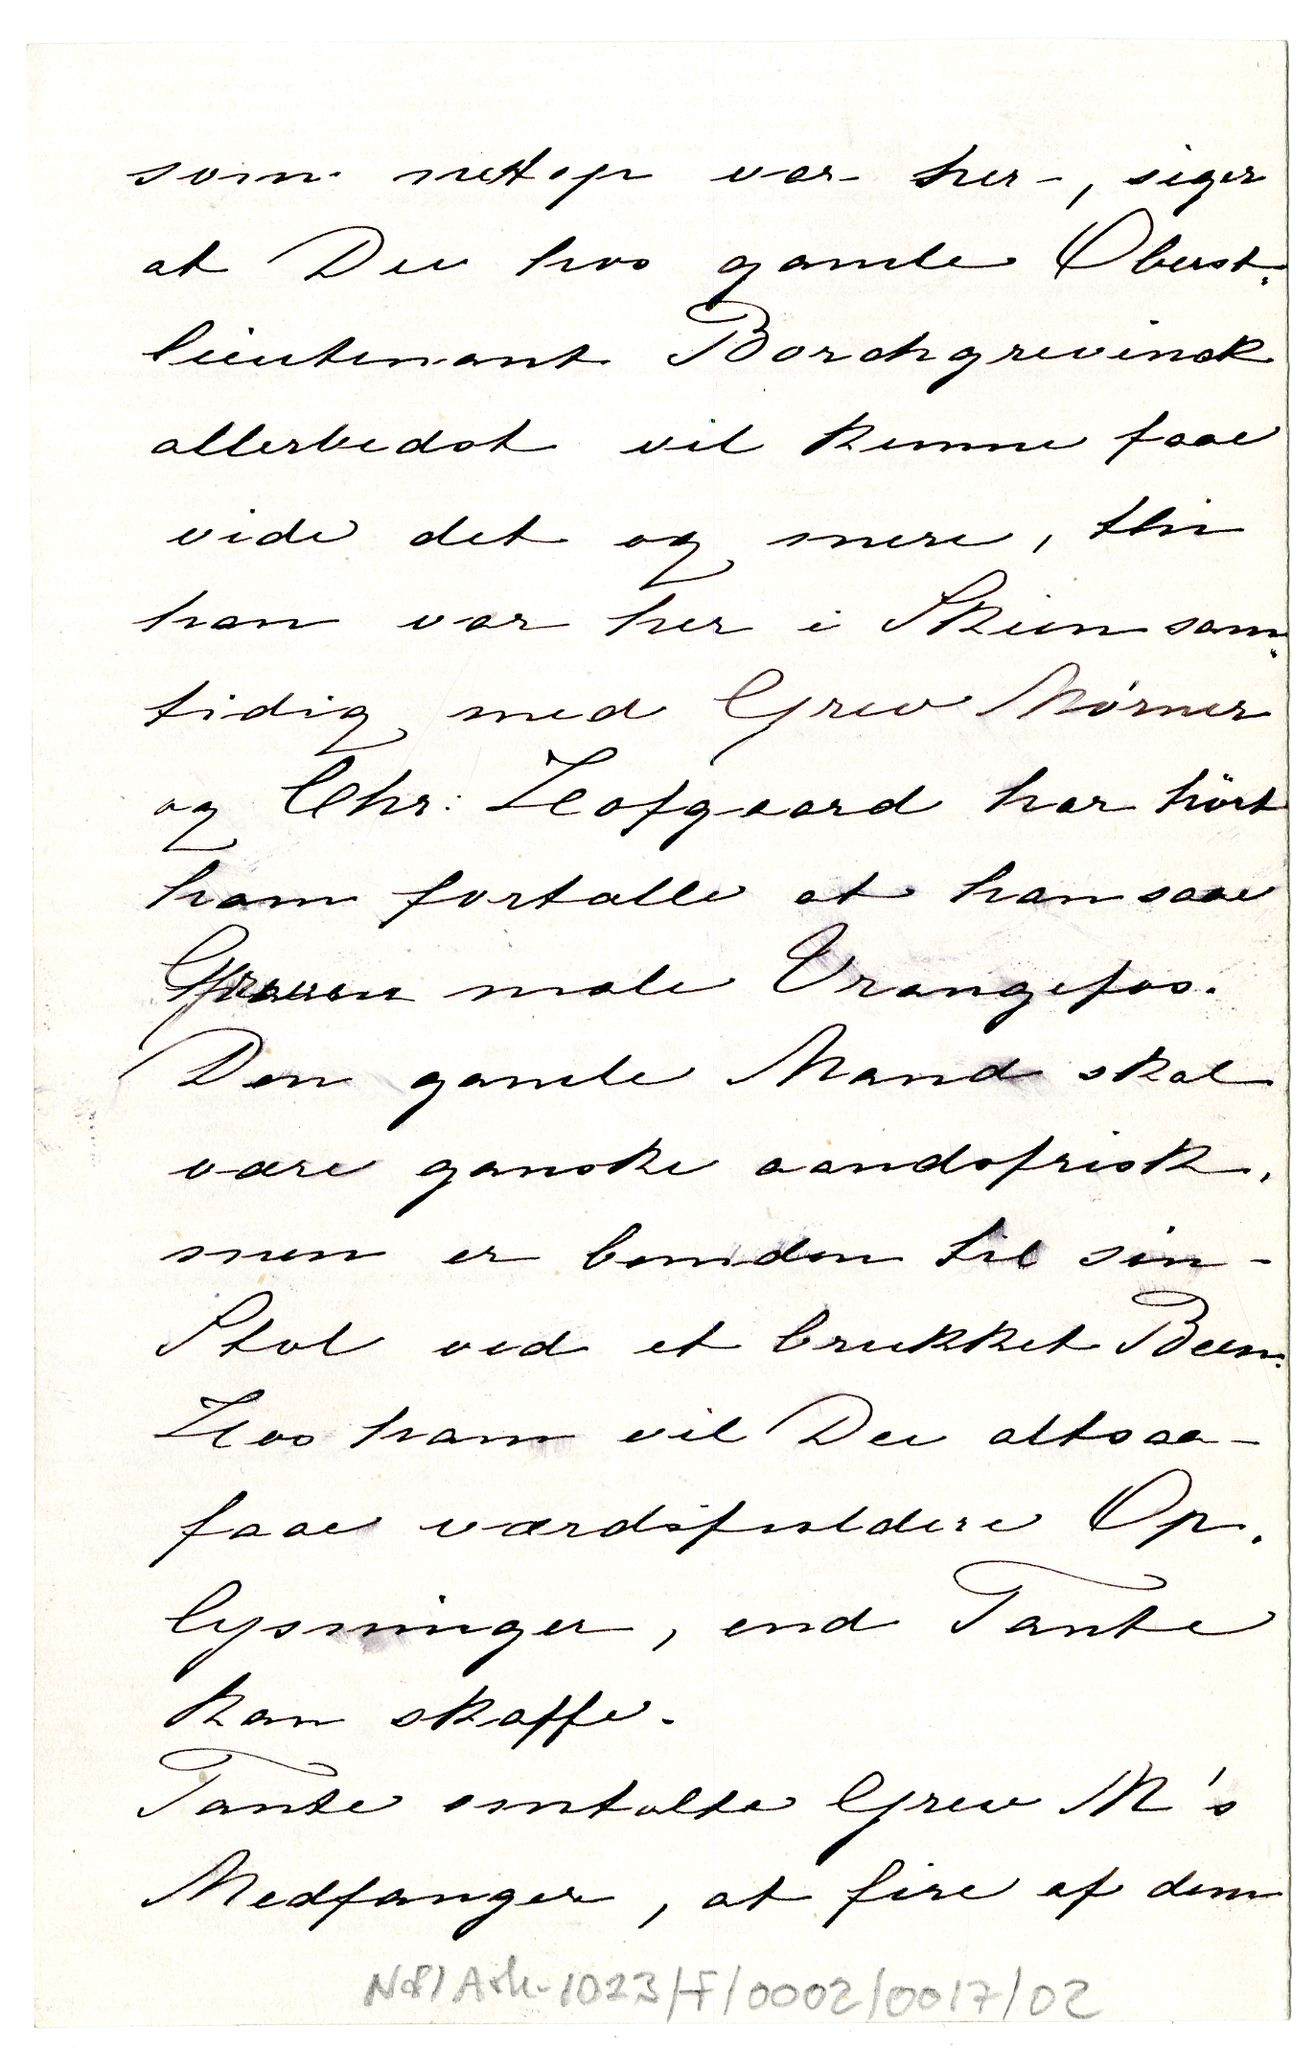 som nettop var her, siger
at De hos gamle Oberst-
lieutenant Borchgrevinck
allerbedst vil kunne faae
vide det og mere, thi
han var her i Skien sam-
tidig med Grev Mörner
og Chr: Hofgaard har hört
ham fortælle at han saae
Greven male Vrangefos.
Den gamle Mand skal
være ganske aandsfrisk,
men er bunden til sin
Stol ved et brukket Been.
Hos ham vil De altsaa
faae værdifuldere Op-
lysninger, end Tante
kan skaffe.
Tante omtalte Grev M's
Medfanger, at fire af dem
NS1Ark-1023/F/0002/0017/02